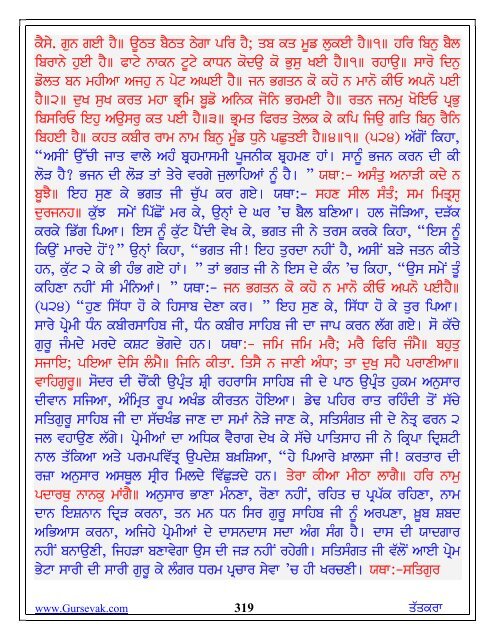 ਕੈਸੇ. ਗੁਨ ਗਈ ਹੈ॥ ਊਠਤ ਬੈਠਤ ਠੇਗਾ ਪਰਿ ਹੈ; ਤਬ ਕਤ ਮੂਡ ਲੁਕਈ ਹੈ॥੧॥ ਹਰਿ ਬਿਨੁ ਬੈਲ
ਬਿਰਾਨੇ ਹੁਈ ਹੈ॥ ਫਾਟੇ ਨਾਕਨ ਟੂਟੇ ਕਾਧਨ ਕੋਦਉ ਕੋ ਭੁਸੁ ਖਈ ਹੈ॥੧॥ ਰਹਾਉ॥ ਸਾਰੋ ਦਿਨੁ
ਡੋਲਤ ਬਨ ਮਹੀਆ ਅਜਹੁ ਨ ਪੇਟ ਅਘਈ ਹੈ॥ ਜਨ ਭਗਤਨ ਕੋ ਕਹੋ ਨ ਮਾਨੋ ਕੀਓ ਅਪਨੋ ਪਈ
ਹੈ॥੨॥ ਦੁਖ ਸੁਖ ਕਰਤ ਮਹਾ ਭ੍ਰਮਿ ਬੂਡੋ ਅਨਿਕ ਜੋਨਿ ਭਰਮਈ ਹੈ॥ ਰਤਨ ਜਨਮੁ ਖੋਇਓ ਪ੍ਰਭੁ
ਬਿਸਰਿਓ ਇਹੁ ਅਉਸਰੁ ਕਤ ਪਈ ਹੈ॥੩॥ ਭ੍ਰਮਤ ਫਿਰਤ ਤੇਲਕ ਕੇ ਕਪਿ ਜਿਉ ਗਤਿ ਬਿਨੁ ਰੈਨਿ
ਬਿਹਈ ਹੈ॥ ਕਹਤ ਕਬੀਰ ਰਾਮ ਨਾਮ ਬਿਨੁ ਮੂੰਡ ਧੁਨੇ ਪਛੁਤਈ ਹੈ॥੪॥੧॥ (ਪ੨੪) ਅੱਗੋਂ ਕਿਹਾ,
“ਅਸੀਂ ਉੱਚੀ ਜਾਤ ਵਾਲੇ ਅਹੰ ਬ੍ਰਹਮਾਸਮੀ ਪੂਜਨੀਕ ਬ੍ਰਹਮਣ ਹਾਂ। ਸਾਨੂੰ ਭਜਨ ਕਰਨ ਦੀ ਕੀ
ਲੋੜ ਹੈ? ਭਜਨ ਦੀ ਲੋੜ ਤਾਂ ਤੇਰੇ ਵਰਗੇ ਜੁਲਾਹਿਆਂ ਨੂੰ ਹੈ। ” ਯਥਾ:- ਅਸੰਤੁ ਅਨਾੜੀ ਕਦੇ ਨ
ਬੂਝੈ॥ ਇਹ ਸੁਣ ਕੇ ਭਗਤ ਜੀ ਚੁੱਪ ਕਰ ਗਏ। ਯਥਾ:- ਸਹਣ ਸੀਲ ਸੰਤੰ; ਸਮ ਮਿਤ੍ਰਸੵ
ਦੁਰਜਨਹ॥ ਕੁੱਝ ਸਮੇਂ ਪਿੱਛੋਂ ਮਰ ਕੇ, ਉਨ੍ਹਾਂ ਦੇ ਘਰ 'ਚ ਬੈਲ ਬਣਿਆ। ਹਲ ਜੋੜਿਆ, ਦੜੱਕ
ਕਰਕੇ ਡਿੱਗ ਪਿਆ। ਇਸ ਨੂੰ ਕੁੱਟ ਪੈਂਦੀ ਵੇਖ ਕੇ, ਭਗਤ ਜੀ ਨੇ ਤਰਸ ਕਰਕੇ ਕਿਹਾ, “ਇਸ ਨੂੰ
ਕਿਉਂ ਮਾਰਦੇ ਹੋਂ?” ਉਨ੍ਹਾਂ ਕਿਹਾ, “ਭਗਤ ਜੀ! ਇਹ ਤੁਰਦਾ ਨਹੀਂ ਹੈ, ਅਸੀਂ ਬੜੇ ਜਤਨ ਕੀਤੇ
ਹਨ, ਕੁੱਟ ੨ ਕੇ ਭੀ ਹੰਭ ਗਏ ਹਾਂ। ” ਤਾਂ ਭਗਤ ਜੀ ਨੇ ਇਸ ਦੇ ਕੰਨ 'ਚ ਕਿਹਾ, “ਉਸ ਸਮੇਂ ਤੂੰ
ਕਹਿਣਾ ਨਹੀਂ ਸੀ ਮੰਨਿਆਂ। ” ਯਥਾ:- ਜਨ ਭਗਤਨ ਕੋ ਕਹੋ ਨ ਮਾਨੋ ਕੀਓ ਅਪਨੋ ਪਈਹੈ॥
(ਪ੨੪) “ਹੁਣ ਸਿੱਧਾ ਹੋ ਕੇ ਹਿਸਾਬ ਦੇਣਾ ਕਰ। ” ਇਹ ਸੁਣ ਕੇ, ਸਿੱਧਾ ਹੋ ਕੇ ਤੁਰ ਪਿਆ।
ਸਾਰੇ ਪ੍ਰੇਮੀ ਧੰਨ ਕਬੀਰਸਾਹਿਬ ਜੀ, ਧੰਨ ਕਬੀਰ ਸਾਹਿਬ ਜੀ ਦਾ ਜਾਪ ਕਰਨ ਲੱਗ ਗਏ। ਸੋ ਕੱਚੇ
ਗੁਰੂ ਜੰਮਦੇ ਮਰਦੇ ਕਸ਼ਟ ਭੋਗਦੇ ਹਨ। ਯਥਾ:- ਜਮਿ ਜਮਿ ਮਰੈ; ਮਰੈ ਫਿਰਿ ਜੰਮੈ॥ ਬਹੁਤੁ
ਸਜਾਇ; ਪਇਆ ਦੇਸਿ ਲੰਮੈ॥ ਜਿਨਿ ਕੀਤਾ. ਤਿਸੈ ਨ ਜਾਣੀ ਅੰਧਾ; ਤਾ ਦੁਖੁ ਸਹੈ ਪਰਾਣੀਆ॥
ਵਾਹਿਗੁਰੂ॥ ਸੋਦਰ ਦੀ ਚੌਂਕੀ ਉਪ੍ਰੰਤ ਸ਼੍ਰੀ ਰਹਰਾਸਿ ਸਾਹਿਬ ਜੀ ਦੇ ਪਾਠ ਉਪ੍ਰੰਤ ਹੁਕਮ ਅਨੁਸਾਰ
ਦੀਵਾਨ ਸਜਿਆ, ਅੰਮ੍ਰਿਤ ਰੂਪ ਅਖੰਡ ਕੀਰਤਨ ਹੋਇਆ। ਡੇਢ ਪਹਿਰ ਰਾਤ ਰਹਿੰਦੀ ਤੋਂ ਸੱਚੇ
ਸਤਿਗੁਰੂ ਸਾਹਿਬ ਜੀ ਦਾ ਸੱਚਖੰਡ ਜਾਣ ਦਾ ਸਮਾਂ ਨੇੜੇ ਜਾਣ ਕੇ, ਸਤਿਸੰਗਤ ਜੀ ਦੇ ਨੇਤ੍ਰ ਫਰਨ ੨
ਜਲ ਵਹਾਉਣ ਲੱਗੇ। ਪ੍ਰੇਮੀਆਂ ਦਾ ਅਧਿਕ ਵੈਰਾਗ ਦੇਖ ਕੇ ਸੱਚੇ ਪਾਤਿਸਾਹ ਜੀ ਨੇ ਕ੍ਰਿਪਾ ਦ੍ਰਿਸ਼ਟੀ
ਨਾਲ ਤੱਕਿਆ ਅਤੇ ਪਰਮਪਵਿੱਤ੍ਰ ਉਪਦੇਸ਼ ਬਖ਼ਸ਼ਿਆ, “ਹੇ ਪਿਆਰੇ ਖ਼ਾਲਸਾ ਜੀ! ਕਰਤਾਰ ਦੀ
ਰਜ਼ਾ ਅਨੁਸਾਰ ਅਸਥੂਲ ਸ੍ਰੀਰ ਮਿਲਦੇ ਵਿੱਛੁੜਦੇ ਹਨ। ਤੇਰਾ ਕੀਆ ਮੀਠਾ ਲਾਗੈ॥ ਹਰਿ ਨਾਮੁ
ਪਦਾਰਥੁ ਨਾਨਕੁ ਮਾਂਗੈ॥ ਅਨੁਸਾਰ ਭਾਣਾ ਮੰਨਣਾ, ਰੋਣਾ ਨਹੀਂ, ਰਹਿਤ ਚ ਪ੍ਰਪੱਕ ਰਹਿਣਾ, ਨਾਮ
ਦਾਨ ਇਸ਼ਨਾਨ ਦ੍ਰਿੜ ਕਰਨਾ, ਤਨ ਮਨ ਧਨ ਸਿਰ ਗੁਰੂ ਸਾਹਿਬ ਜੀ ਨੂੰ ਅਰਪਣਾ, ਖ਼ੂਬ ਸ਼ਬਦ
ਅਭਿਆਸ ਕਰਨਾ, ਅਜਿਹੇ ਪ੍ਰੇਮੀਆਂ ਦੇ ਦਾਸਨਦਾਸ ਸਦਾ ਅੰਗ ਸੰਗ ਹੈ। ਦਾਸ ਦੀ ਯਾਦਗਾਰ
ਨਹੀਂ ਬਨਾਉਣੀ, ਜਿਹੜਾ ਬਣਾਵੇਗਾ ਉਸ ਦੀ ਜੜ ਨਹੀਂ ਰਹੇਗੀ। ਸਤਿਸੰਗਤ ਜੀ ਵੱਲੋਂ ਆਈ ਪ੍ਰੇਮ
ਭੇਟਾ ਸਾਰੀ ਦੀ ਸਾਰੀ ਗੁਰੂ ਕੇ ਲੰਗਰ ਧਰਮ ਪ੍ਰਚਾਰ ਸੇਵਾ 'ਚ ਹੀ ਖਰਚਣੀ। ਯਥਾ:-ਸਤਿਗੁਰ
www.Gursevak.com 319 ਤੱਤਕਰਾ